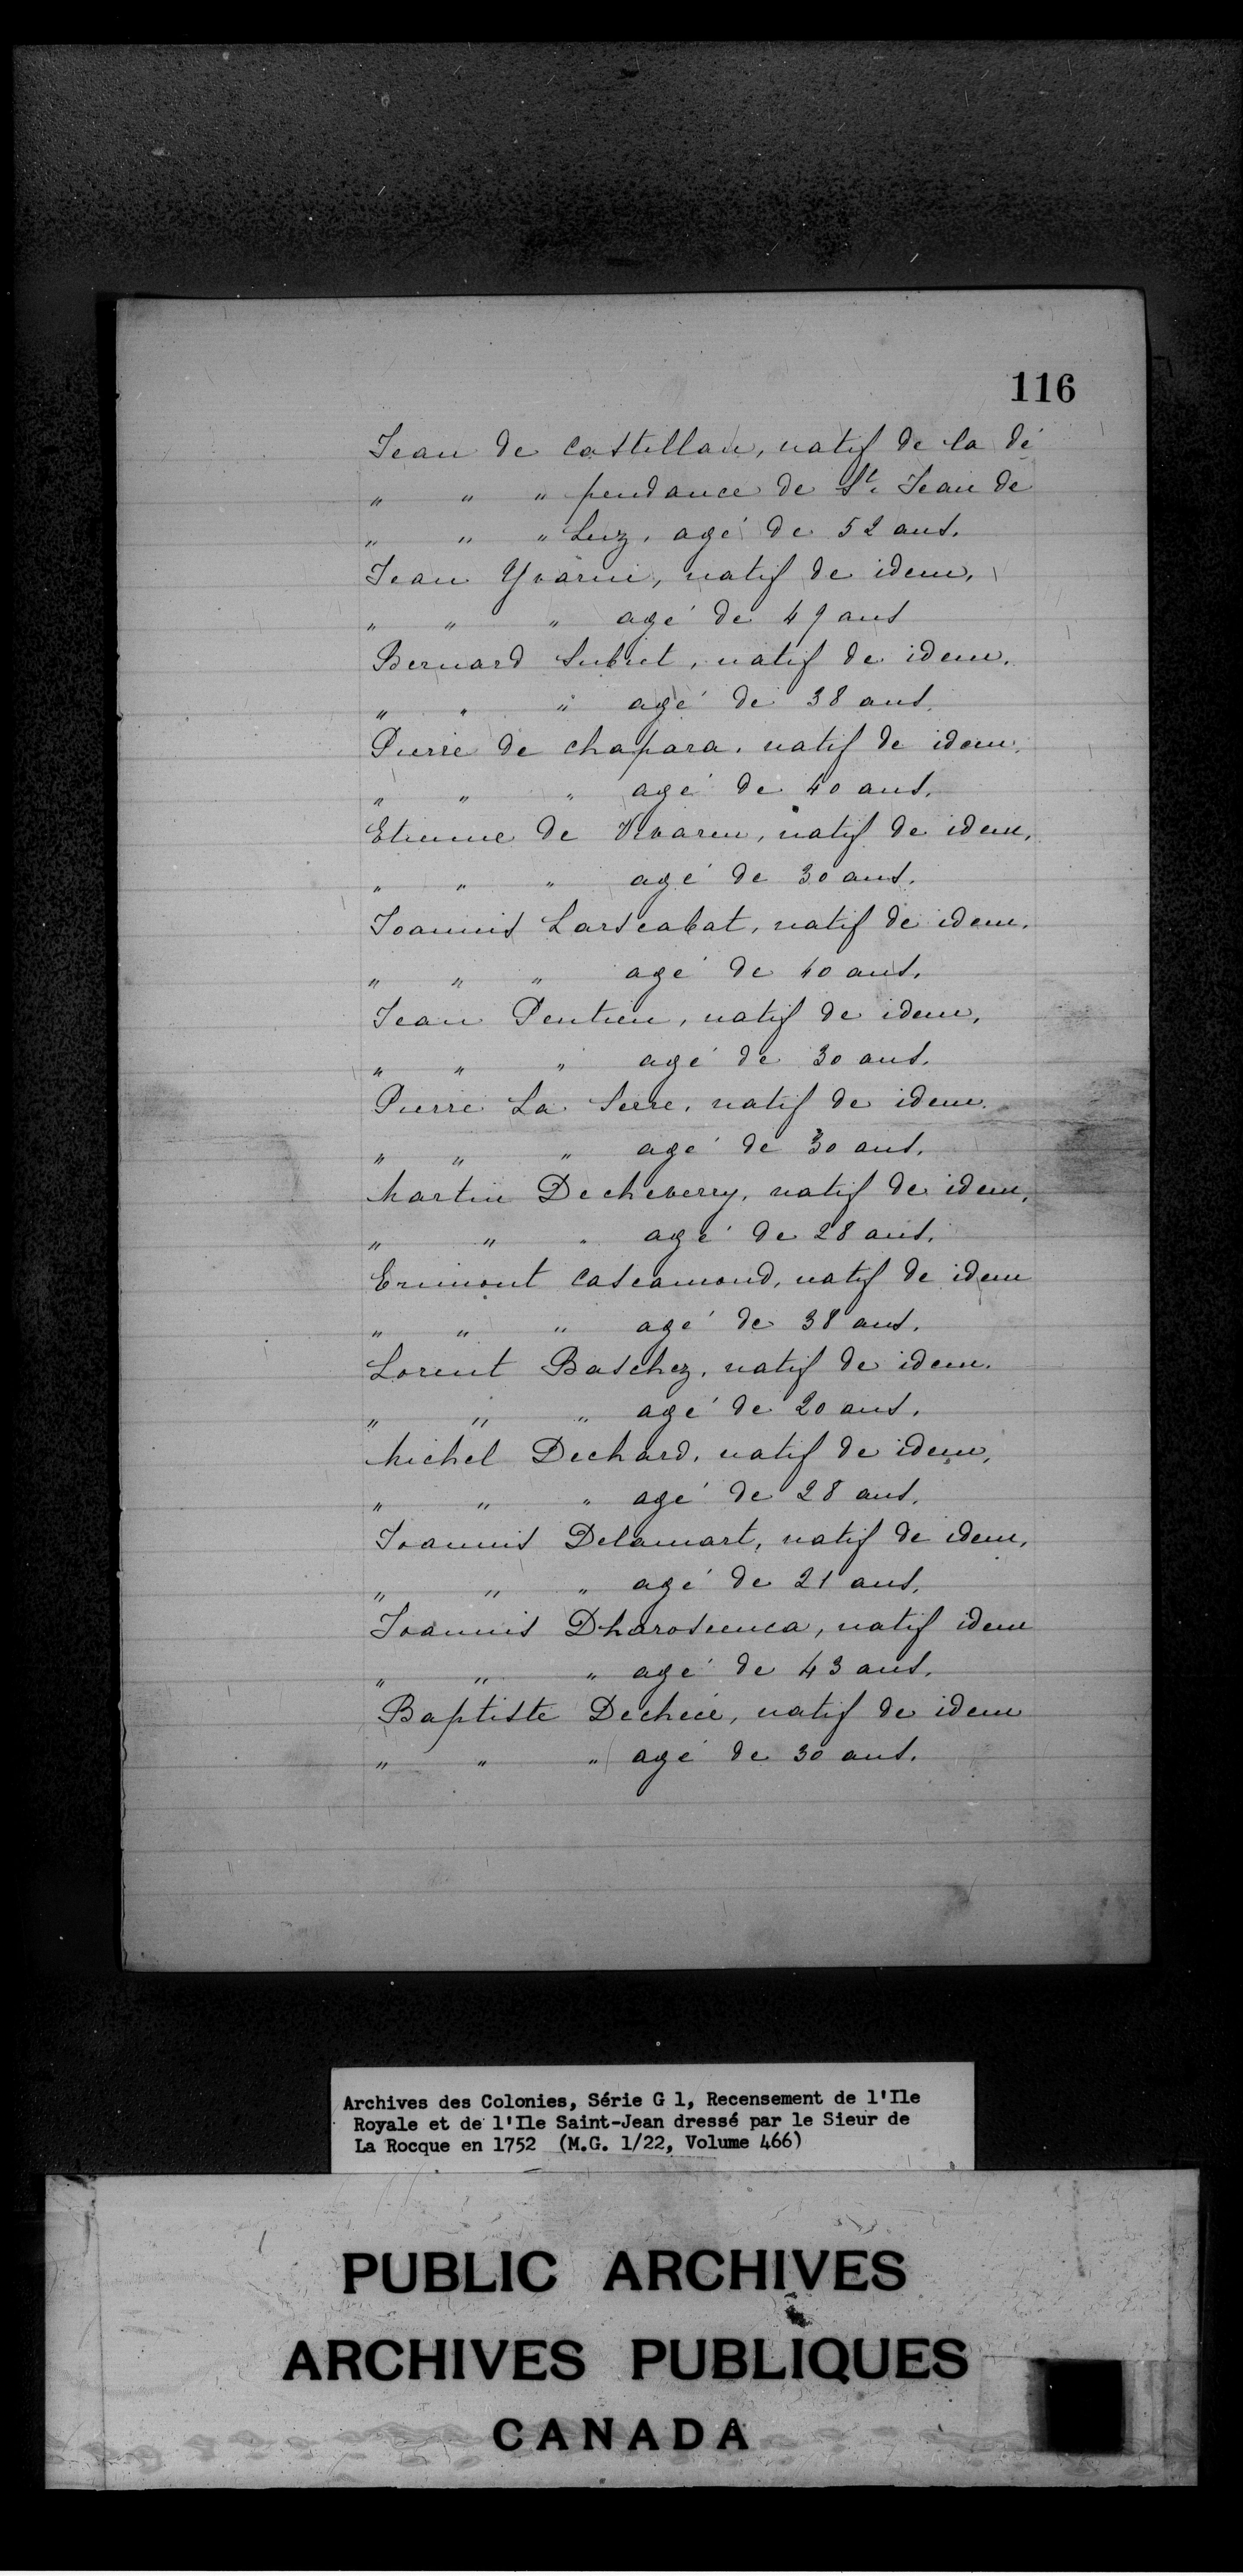 116
Jean de Castillan, natif de la dé
" " " pendance de St. Jean de
" " " Luz, agé de 52 ans.
Jean Yvarni, natif de idem,
" " " agé de 49 ans
Bernard Subiet, natif de idem.
" " " agé de 38 ans.
Pierre de Chapara, natif de idem,
" " " agé de 40 ans.
Etienne de Vivaren, natif de idem,
" " " agé de 30 ans.
Joannis Larscabat, natif de idem.
" " " agé de 40 ans.
Jean Pentien, natif de idem,
" " " agé de 30 ans.
Pierre La Serre, natif de idem.
" " " agé de 30 ans.
Martin Decheverry, natif de idem,
" " " agé de 28 ans.
Erimont Cascamond, natif de idem
" " " agé de 38 ans.
Lorent Baschez, natif de idem.
" " " agé de 20 ans.
Michel Dechard, natif de idem,
" " " agé de 28 ans.
Joannis Delamart, natif de idem,
" " " agé de 21 ans.
Joannis Dharosienca, natif idem
" " " agé de 43 ans.
Baptiste Decheie, natif de idem
" " " agé de 30 ans.
Archives des Colonies, Série G 1, Recensement de l'Ile
Royale et de l'Ile Saint-Jean dressé par le Sieur de
La Rocque en 1752 (M.G. 1/22, Volume 466)
PUBLIC ARCHIVES
ARCHIVES PUBLIQUES
CANADA